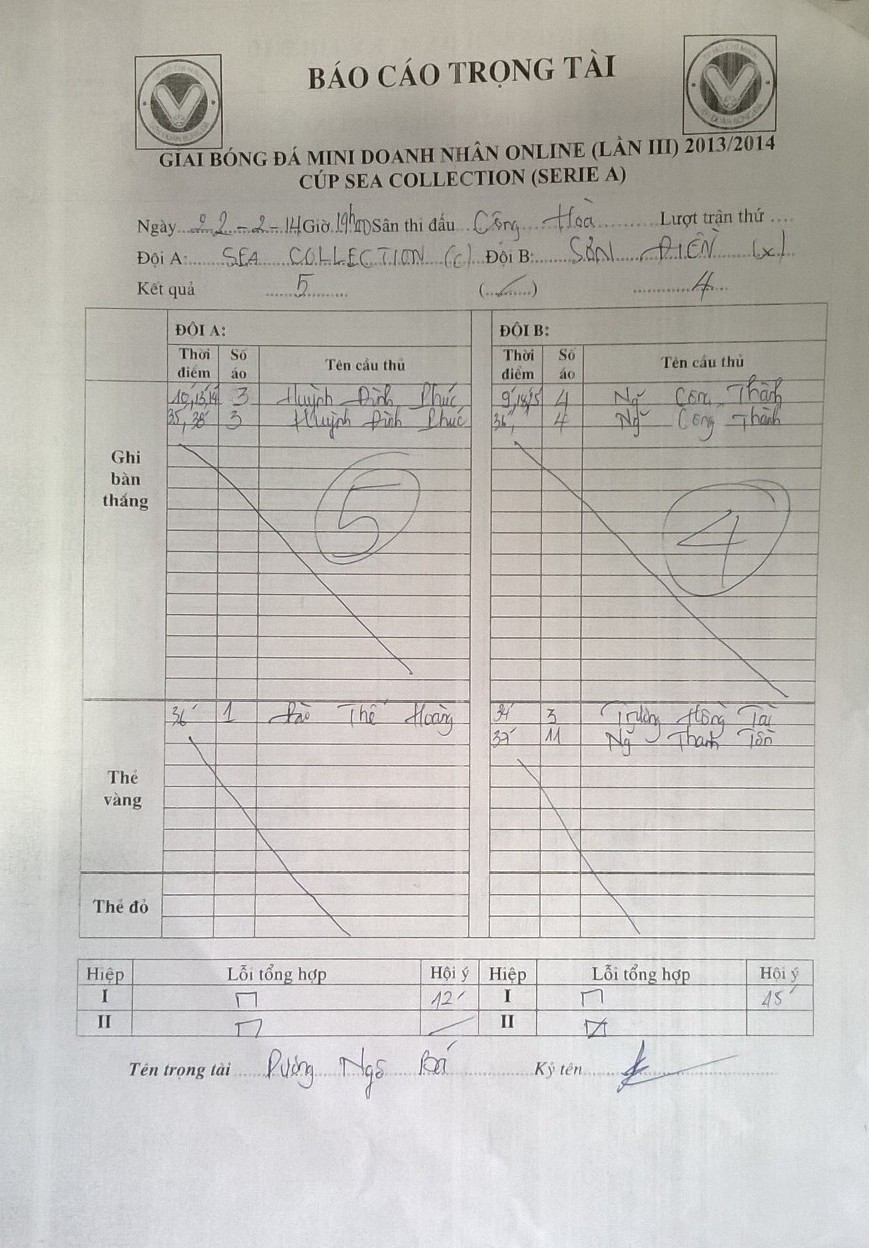 BÁO CÁO TRỌNG TÀI
GIẢI BÓNG ĐÁ MINI DOANH NHÂN ONLINE (LẦN III) 2013/2014
CÚP SEA COLLECTION (SERIE A)
Ngày 22-2-14 Giờ 19h Sân thi đấu Cộng Hoà Lượt trận thứ
Đội A: SEA COLLECTION (c) Đội B: SƠN ĐIỀN (x)
Kết quả 5 4
ĐỘI A: ĐỘI B:
Thời điểm Số áo Tên cầu thủ Thời điểm Số áo Tên cầu thủ
Ghi bàn thắng
3 Huỳnh Đình Phúc 4 Ng Công Thành
35, 38 3 Huỳnh Đình Phúc 36' 4 Ng Công Thành
5 4
Thẻ vàng
36' 1 Đào Thế Hoàng 3 Trương Hồng Tài
11 Ng Thanh Tấn
Thẻ đỏ
Hiệp Lỗi tổng hợp Hội ý Hiệp Lỗi tổng hợp Hội ý
I 12' I 15'
II II
Tên trọng tài Dương Ngô Bá Ký tên